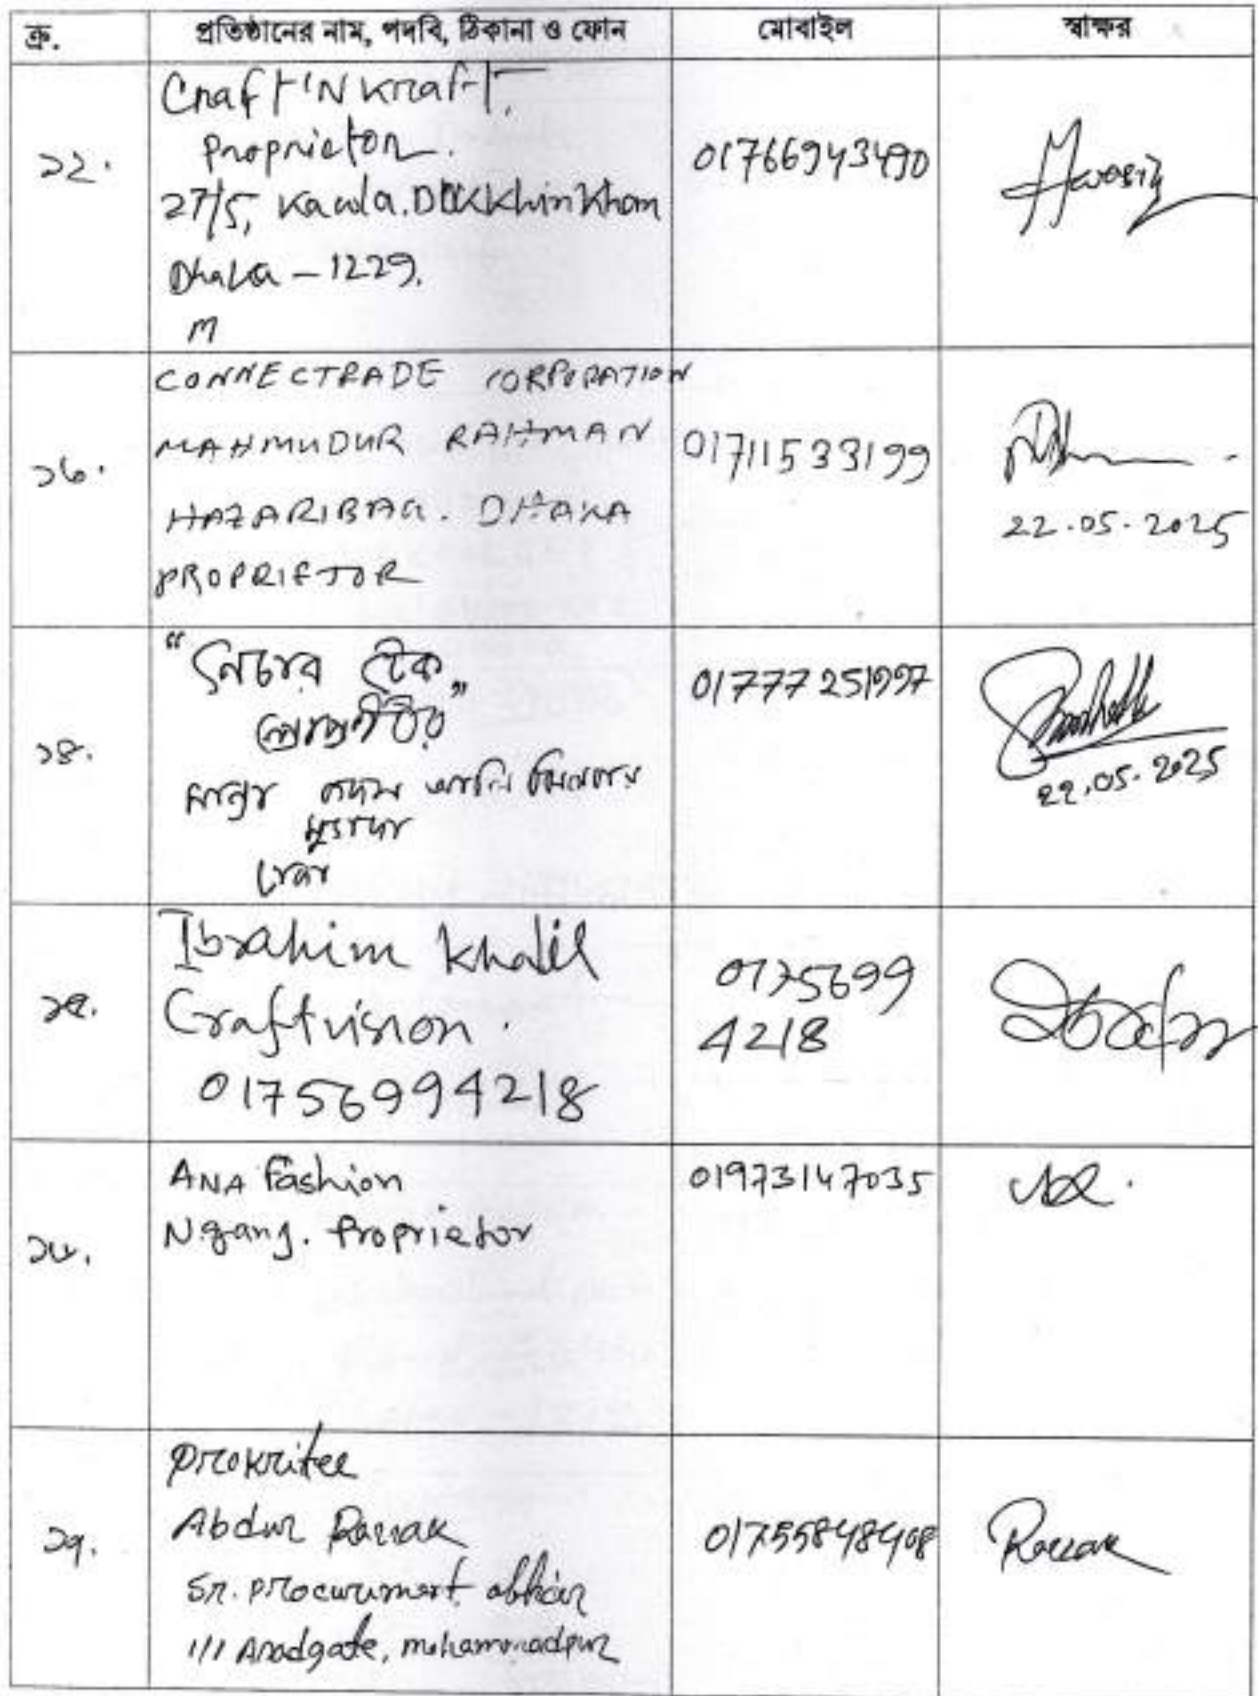 ক্র.
প্রতিষ্ঠানের নাম, পদবি, ঠিকানা ও ফোন
মোবাইল
স্বাক্ষর
১২.
Craft 'N Kraft.
Proprietor.
27/5, Kawla. Dakkhin Khan
Dhaka - 1229.
M
01766943490
১৩.
CONNECTRADE CORPORATION
MAHMUDUR RAHMAN
HAZARIBAG. DHAKA
PROPRIETOR
01711533199
22.05.2025
১৪.
"নেচার টেক"
প্রোপ্রাইটর
01777251997
22.05.2025
১৫.
Ibrahim Khalil
Craftvision.
01756994218
0175699
4218
১৬.
ANA Fashion
N.ganj. Proprietor
01973147035
১৭.
Prokritee
Abdur Razzak
Sr. procurement
1/1 Asadgate, mohammadpur
01755848408
Razzak